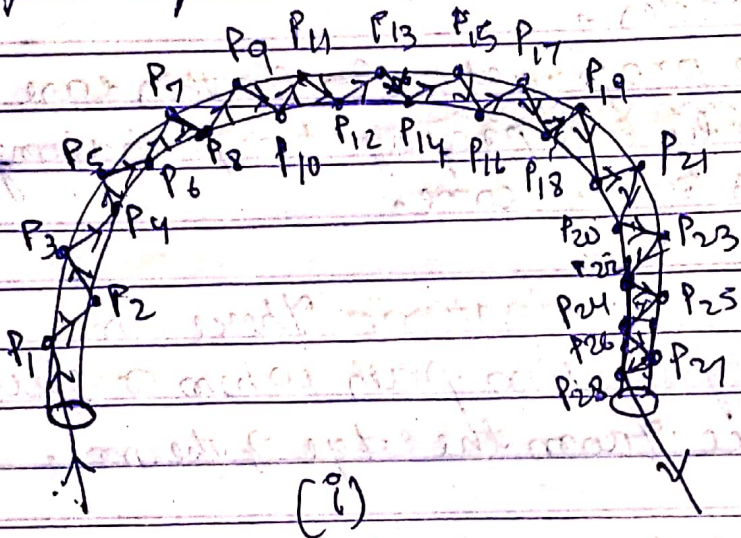 P9 P11 P13 P15 P17
P7 P19
P5 P8 P10 P12 P14 P16 P21
P6 P18
P3 P4 P20 P23
P2 P22
P1 P24 P25
P26 P27
P28
(i)